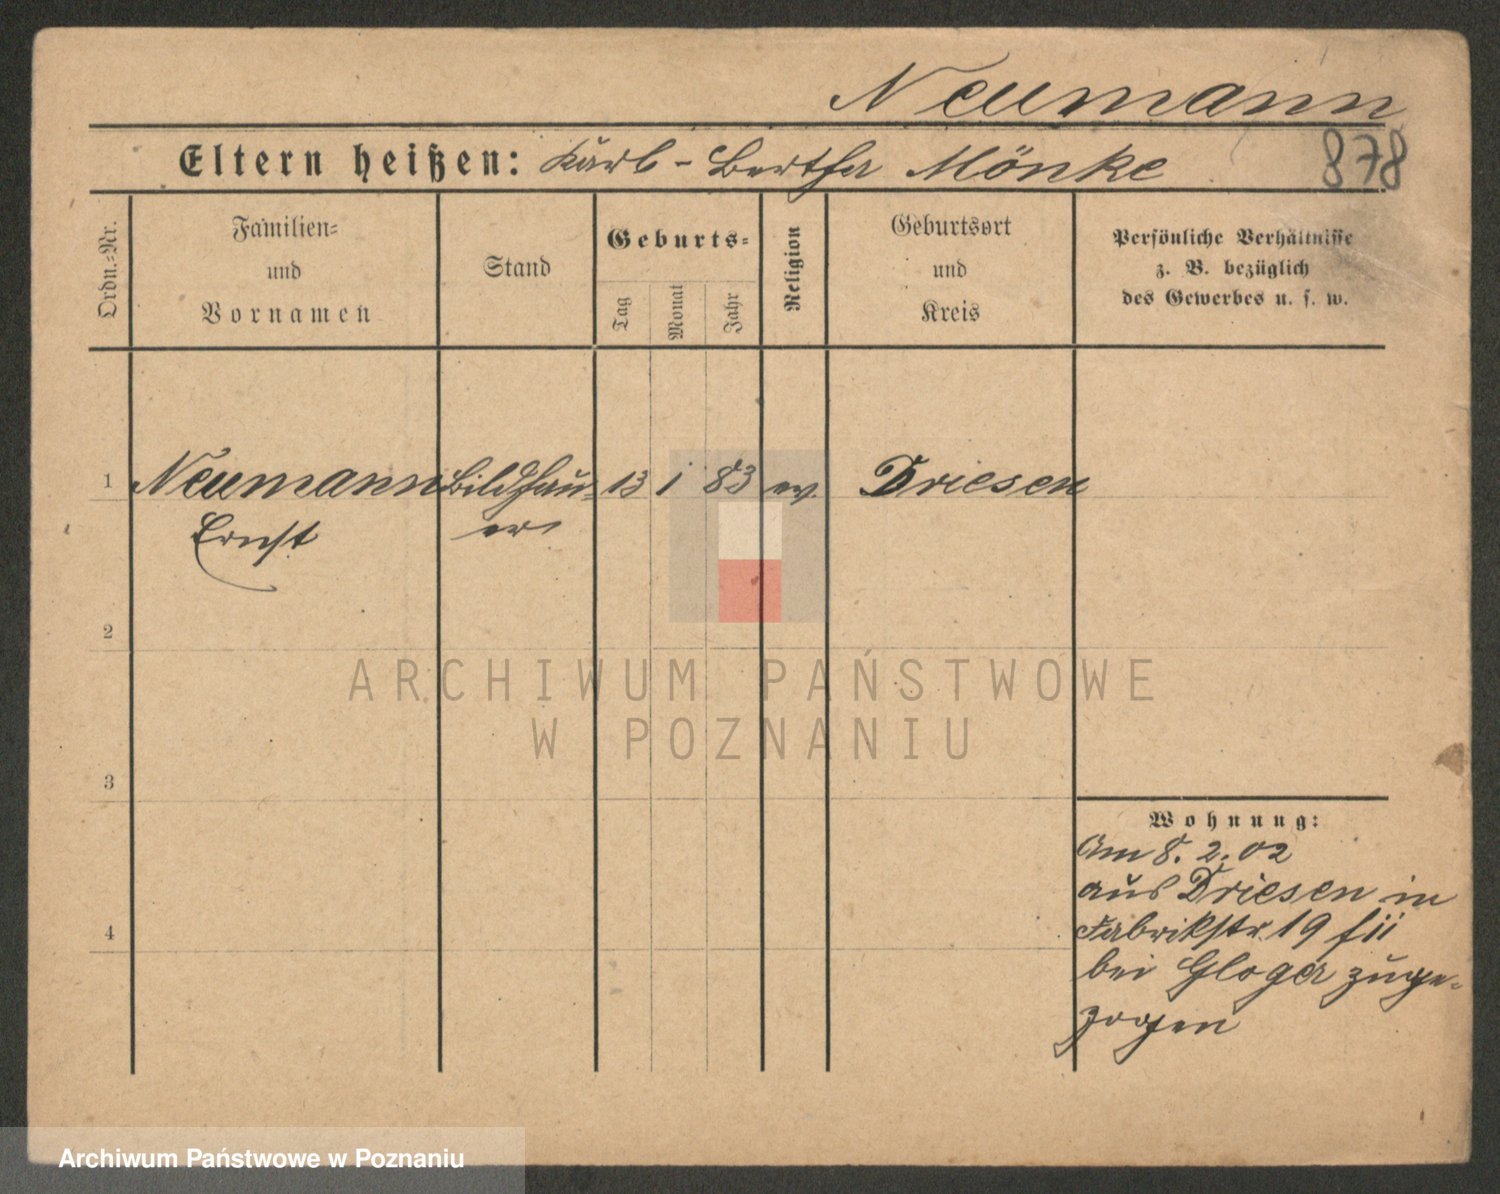 Neumann
878
Eltern heißen: Karl - Bertha Mönke
Ordn.-Nr.
Familien-
und
Vornamen
Stand
Geburts-
Tag
Monat
Jahr
Religion
Geburtsort
und
Kreis
Persönliche Verhältnisse
z. B. bezüglich
des Gewerbes u. s. w.
1 Neumann Bildhau- 13 1 83 ev. Driesen
Ernst er
2
ARCHIWUM PAŃSTWOWE
W POZNANIU
3
Wohnung:
Am 8. 2. 02
aus Driesen in
Fabrikstr. 19
4
bei Gloger zuge-
zogen
Archiwum Państwowe w Poznaniu